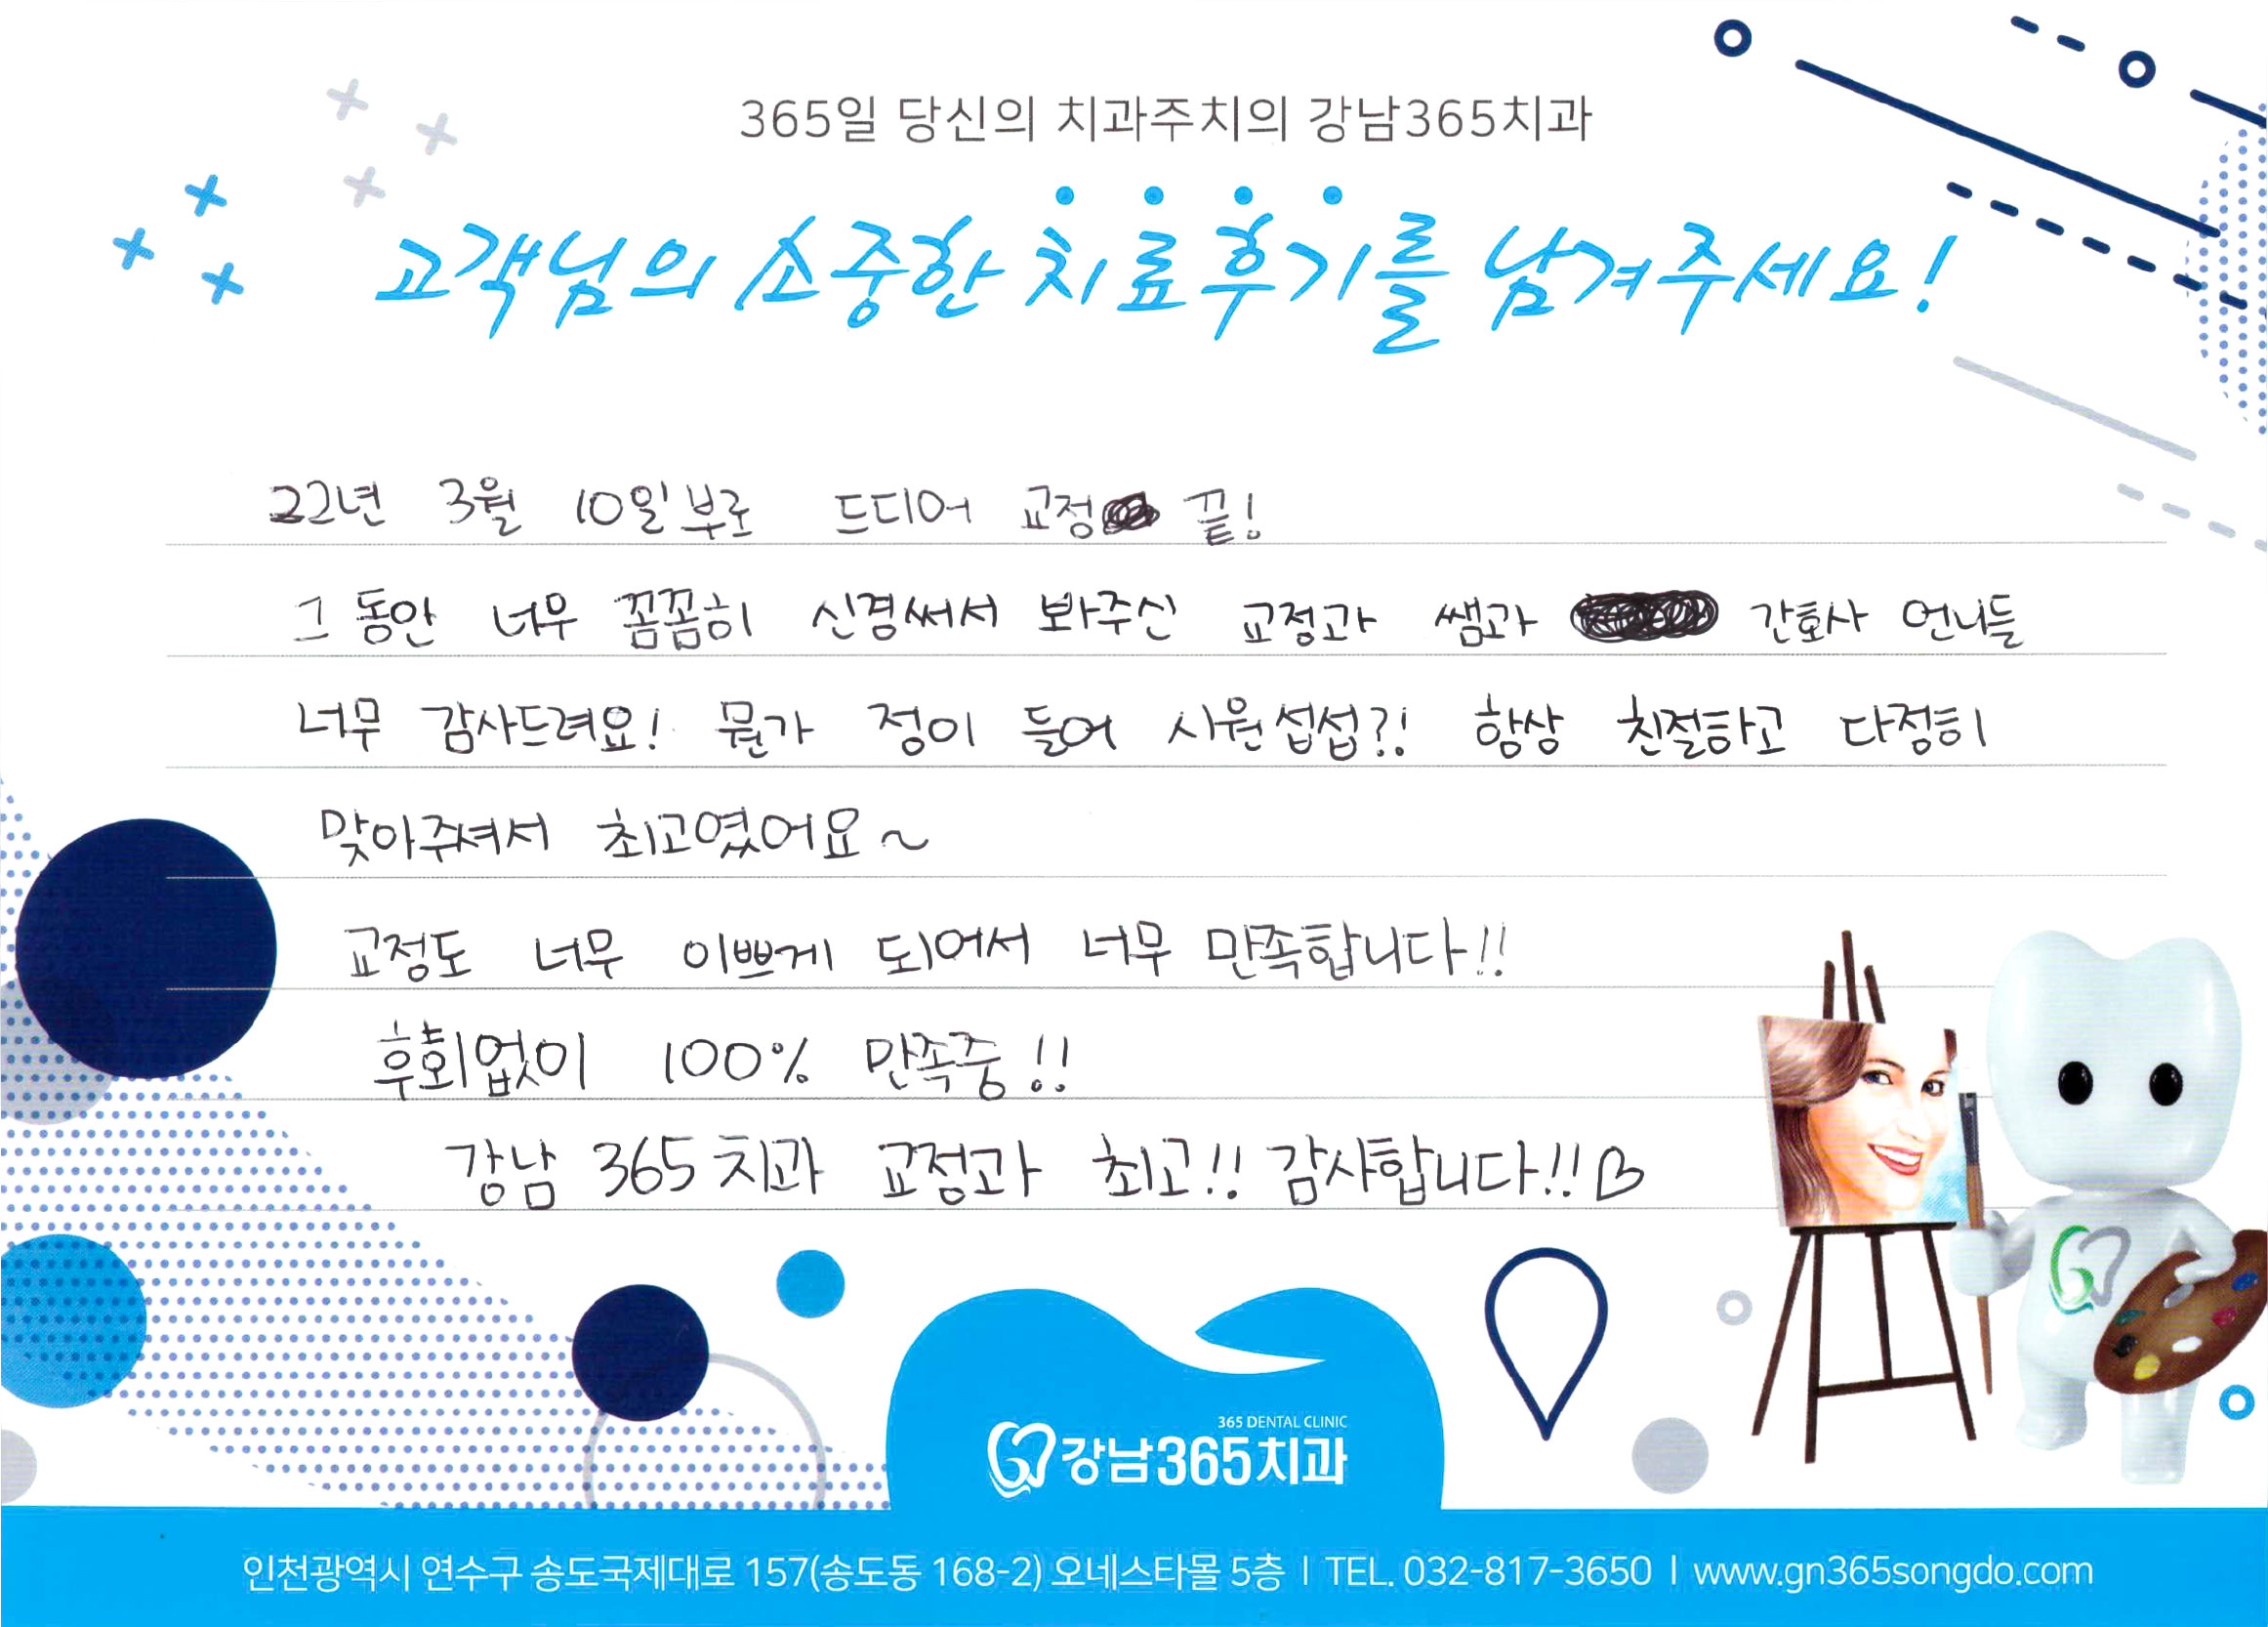 365일 당신의 치과주치의 강남365치과
고객님의 소중한 치료후기를 남겨주세요!
22년 3월 10일부로 드디어 교정 끝!
그동안 너무 꼼꼼히 신경써서 봐주신 교정과 쌤과 간호사 언니들
너무 감사드려요! 뭔가 정이 들어 시원섭섭?! 항상 친절하고 다정히
맞아주셔서 최고였어요~
교정도 너무 이쁘게 되어서 너무 만족합니다!!
후회없이 100% 만족중!!
강남 365 치과 교정과 최고!! 감사합니다!!♡
365 DENTAL CLINIC
강남365치과
인천광역시 연수구 송도국제대로 157(송도동 168-2) 오네스타몰 5층 | TEL. 032-817-3650 | www.gn365songdo.com